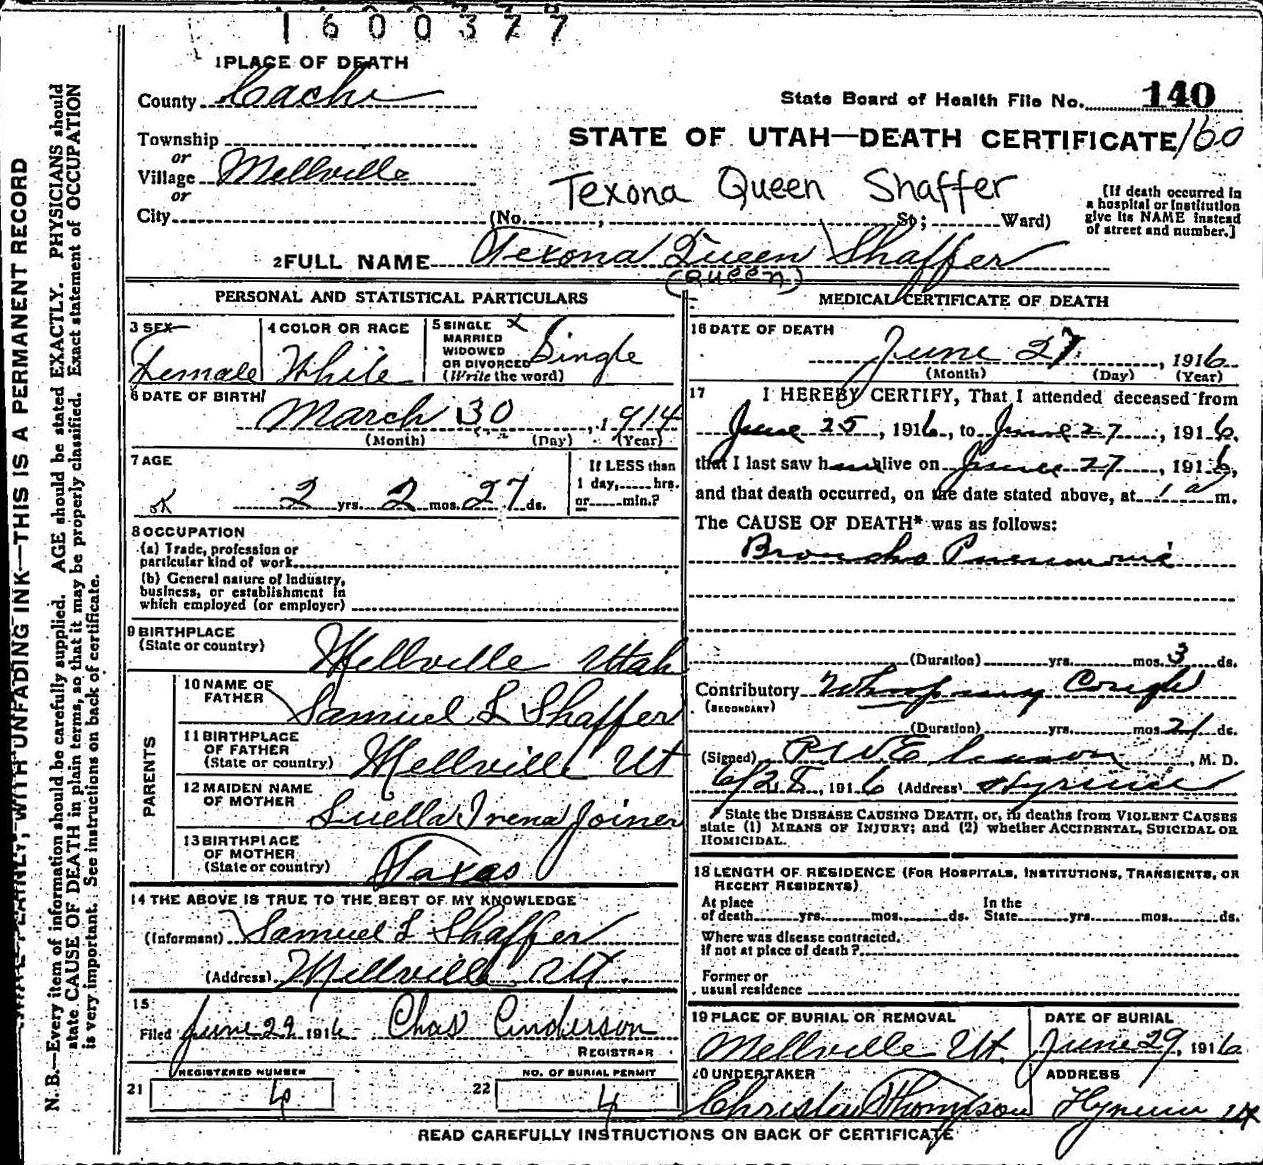 1600377
1 PLACE OF DEATH
County Cache
State Board of Health File No. 140
STATE OF UTAH—DEATH CERTIFICATE 160
Township
or
Village Millville
or
City (No. , St; Ward)
Texona Queen Shaffer
[If death occurred in
a hospital or institution
give its NAME instead
of street and number.]
2 FULL NAME Texona Queen Shaffer
(Queen)
PERSONAL AND STATISTICAL PARTICULARS
3 SEX
Female
4 COLOR OR RACE
White
5 SINGLE
MARRIED
WIDOWED
OR DIVORCED
(Write the word)
x Single
6 DATE OF BIRTH
March 30, 1914
(Month) (Day) (Year)
7 AGE
2 yrs. 2 mos. 27 ds.
If LESS than
1 day, hrs.
or min.?
8 OCCUPATION
(a) Trade, profession or
particular kind of work
(b) General nature of Industry,
business, or establishment in
which employed (or employer)
9 BIRTHPLACE
(State or country)
Millville Utah
PARENTS
10 NAME OF
FATHER
Samuel L Shaffer
11 BIRTHPLACE
OF FATHER
(State or country)
Millville Ut
12 MAIDEN NAME
OF MOTHER
Luella Irena Joiner
13 BIRTHPLACE
OF MOTHER
(State or country)
Taxas
14 THE ABOVE IS TRUE TO THE BEST OF MY KNOWLEDGE
(Informant) Samuel L Shaffer
(Address) Millville Ut
15
Filed June 29 1916 Chas Anderson
REGISTRAR
21 REGISTERED NUMBER
4
22 NO. OF BURIAL PERMIT
4
MEDICAL CERTIFICATE OF DEATH
16 DATE OF DEATH
June 27, 1916
(Month) (Day) (Year)
17 I HEREBY CERTIFY, That I attended deceased from
June 25, 1916, to June 27, 1916,
that I last saw h alive on June 27, 1916,
and that death occurred, on the date stated above, at 1 a m.
The CAUSE OF DEATH* was as follows:
Broncho Pneumonia
(Duration) yrs. mos. 3 ds.
Contributory Whooping Cough
(SECONDARY)
(Duration) yrs. mos. 21 ds.
(Signed) , M. D.
6/28, 1916 (Address) Hyrum
State the DISEASE CAUSING DEATH, or, in deaths from VIOLENT CAUSES
state (1) MEANS OF INJURY; and (2) whether ACCIDENTAL, SUICIDAL OR
HOMICIDAL.
18 LENGTH OF RESIDENCE (FOR HOSPITALS, INSTITUTIONS, TRANSIENTS, OR
RECENT RESIDENTS)
At place
of death yrs. mos. ds.
In the
State yrs. mos. ds.
Where was disease contracted.
if not at place of death?
Former or
usual residence
19 PLACE OF BURIAL OR REMOVAL
Millville Ut.
DATE OF BURIAL
June 29, 1916
20 UNDERTAKER
Thompson
ADDRESS
Hyrum Ut
READ CAREFULLY INSTRUCTIONS ON BACK OF CERTIFICATE
WRITE PLAINLY, WITH UNFADING INK—THIS IS A PERMANENT RECORD
N. B.—Every item of information should be carefully supplied. AGE should be stated EXACTLY. PHYSICIANS should
state CAUSE OF DEATH in plain terms, so that it may be properly classified. Exact statement of OCCUPATION
is very important. See instructions on back of certificate.